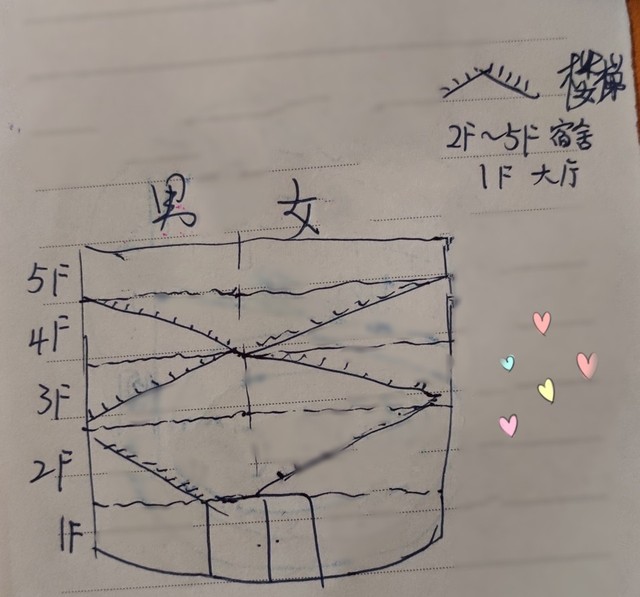 楼梯
2F～5F 宿舍
1F 大厅
男 女
5F
4F
3F
2F
1F